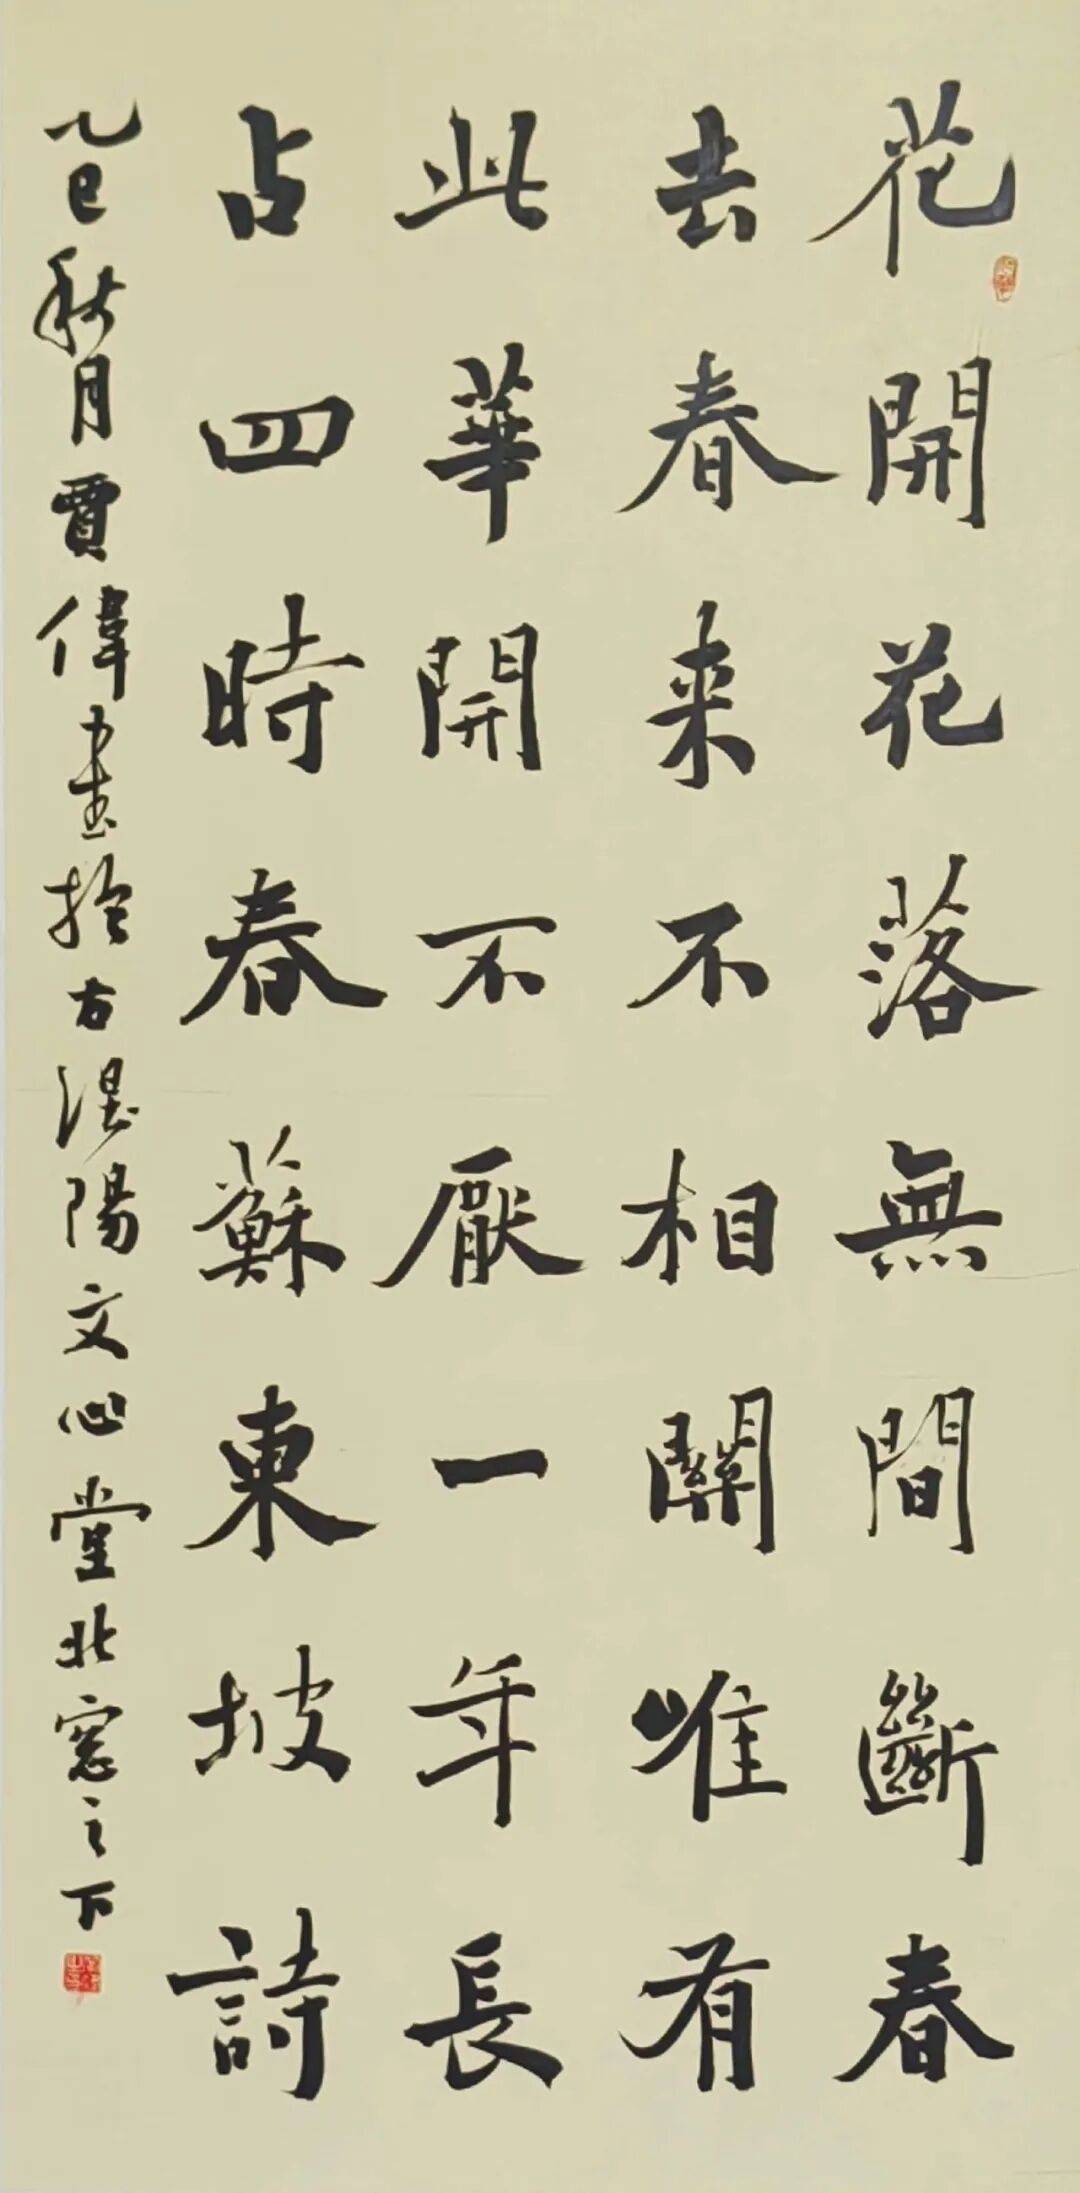 花開花落無間斷春
去春来不相關唯有
此華開不厭一年長
占四時春蘇東坡詩
乙巳秋月賈偉書於古湜陽文心堂北窓之下